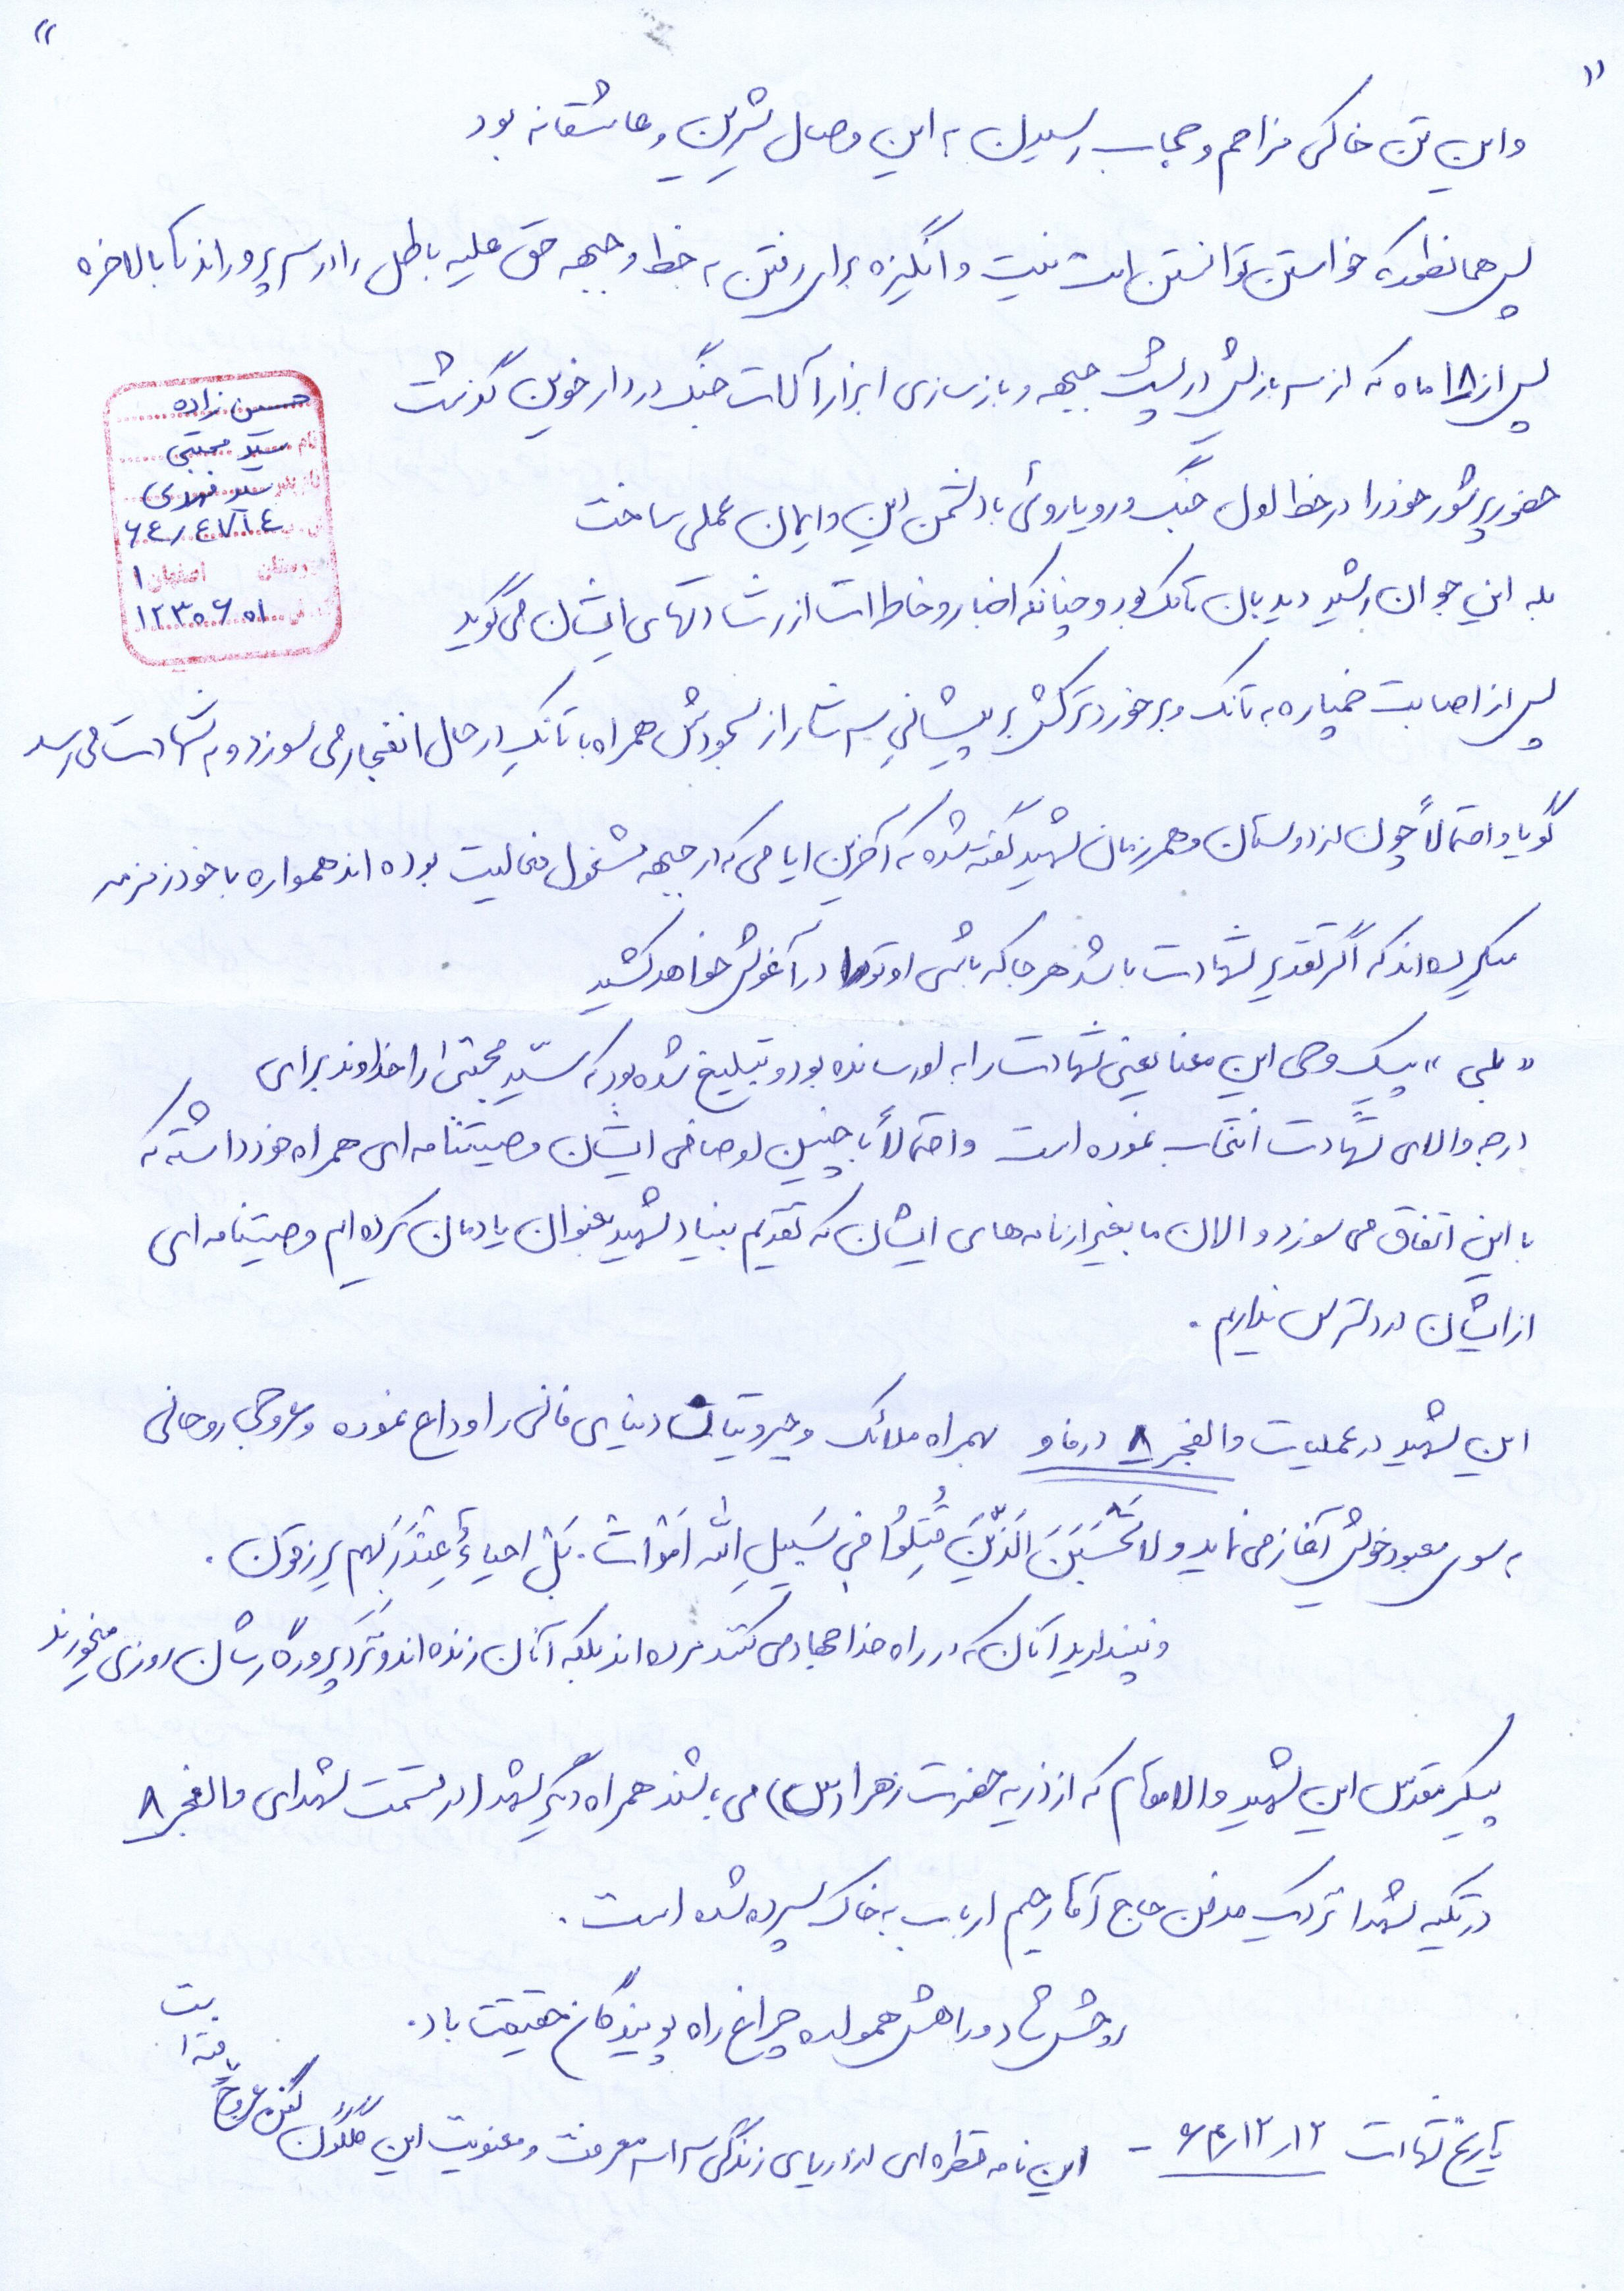 و این تن خاکی مزاحم و حجاب رسیدن به این وصال شیرین و عاشقانه بود
پس همانطور که خواستن توانستن است نیت و انگیزه برای رفتن به خط و جبهه حق علیه باطل را در سر پروراند تا بالاخره
پس از ۱۸ ماه که از سربازیش در پشت جبهه و بازسازی ابزار آلات جنگ در دارخوین گذشت
حضور پرشور خود را در خط اول جنگ و رویاروئی با دشمن دین و ایمان عملی ساخت
بله این جوان رشید دیدبان تانک بود و چنانکه اخبار و خاطرات از رشادتهای ایشان می گوید
پس از اصابت خمپاره به تانک و برخورد ترکش بر پیشانی سرشار از سجودش همراه با تانک در حال انفجار می سوزد و به شهادت می رسد
گویا و احتمالاً چون از دوستان و همرزمان شهید گفته شده که آخرین ایامی که در جبهه مشغول فعالیت بوده اند همواره با خود زمزمه
میکرده اند که اگر تقدیر شهادت باشد هر جا که باشی او تو را در آغوش خواهد کشید
«بلی» پیک وحی این معنا یعنی شهادت را به او رسانده بود و تبلیغ شده بود که سیّد مجتبی را خداوند برای
درجه والای شهادت انتخاب نموده است و احتمالاً با چنین اوصافی ایشان وصیتنامه ای همراه خود داشته که
با این اتفاق می سوزد و الان ما بغیر از نامه های ایشان که تقدیم بنیاد شهید بعنوان یادمان کرده ایم وصیتنامه ای
از ایشان در دسترس نداریم.
این شهید در عملیات والفجر ۸ در فاو بهمراه ملائک و جبروتیان دنیای فانی را وداع نموده و عروجی روحانی
به سوی معبود خویش آغاز می نماید و لا تَحْسَبَنَ الَذّینَ قُتِلُوُا فی سَبیلِ الله اَمْوْاتْ. بَلْ احیاءٌ عِنْدَ رَبهم یرزقون.
و نپندارید آنان که در راه خدا جهاد می کنند مرده اند بلکه آنان زنده اند و نَزد پروردگارشان روزی میخورند
پیکر مقدس این شهید والامقام که از ذریه حضرت زهرا (س) می باشند همراه دیگر شهدا در قسمت شهدای والفجر ۸
در تکیه شهدا نزدیک مدفن حاج آقا رحیم ارباب به خاک سپرده شده است.
روحش شاد و راهش همواره چراغ راه پویندگان حقیقت باد.
تاریخ شهادت ۶۴/۱۲/۱۲ - این نامه قطره ای از دریای زندگی سراسر معرفت و معنویت این گلگون کفن عروج
است
حسین زاده
نام سیّد مجتبی
نام پدر سید مهدی
۶٤/٤۷/٤
شهرستان اصفهان ۱
۱۲۳۰۶۰۵۱